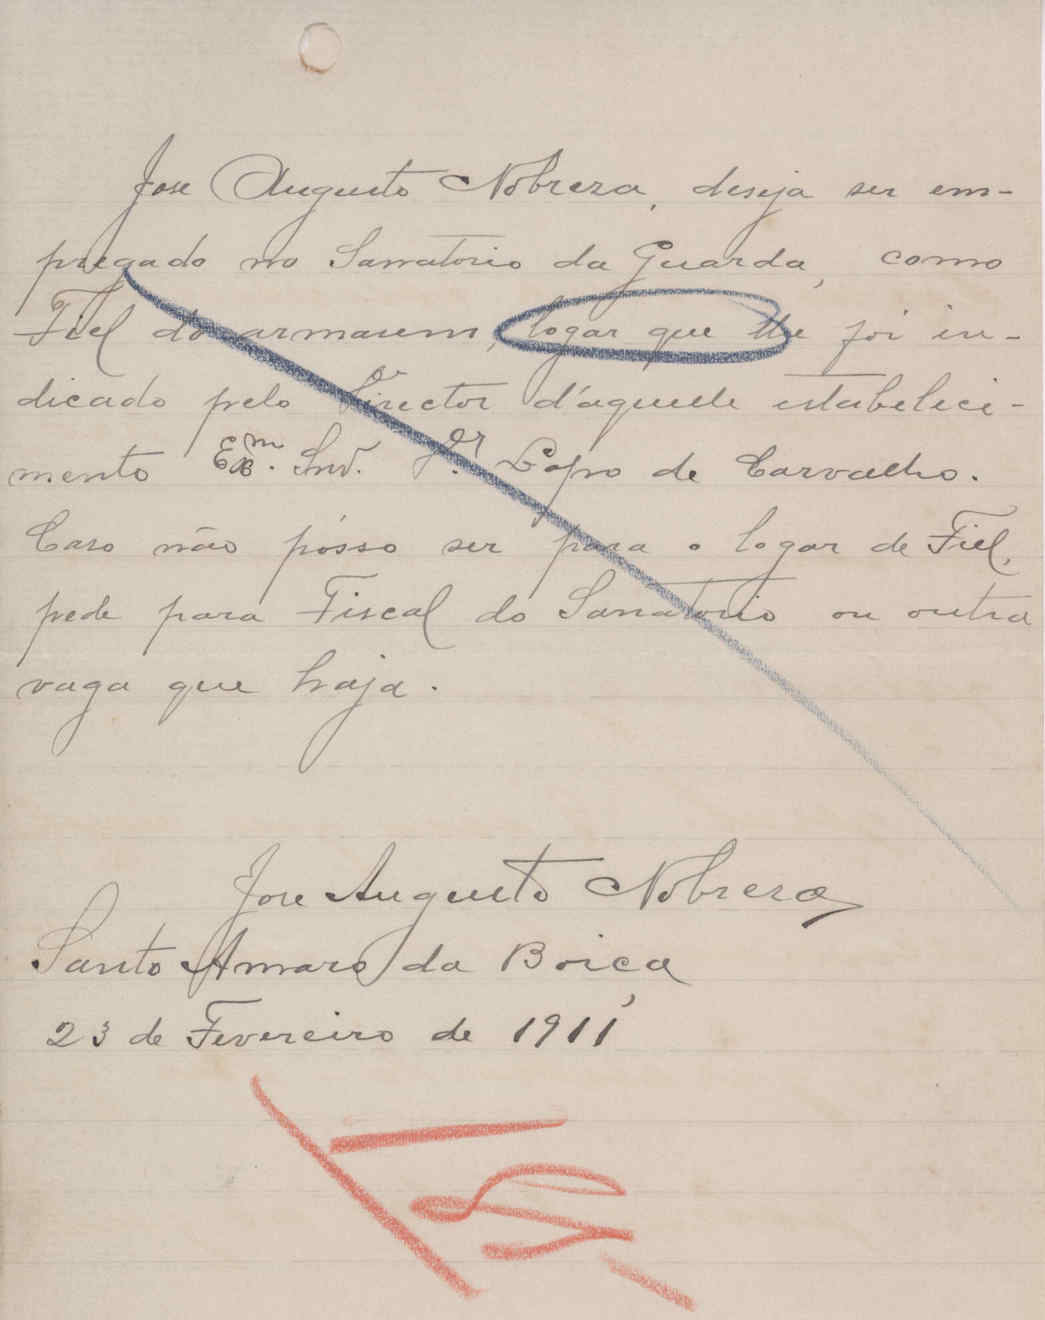 Jose Augusto Nobreza, deseja ser em-
pregado no Sanatorio da Guarda, como
Fiel do armasem, logar que lhe foi in-
dicado pelo Director d'aquele estabeleci-
mento Ex.m Snr. Dr. Lopo de Carvalho.
Caso não pósso ser para o logar de Fiel,
pede para Fiscal do Sanatorio ou outra
vaga que haja.
Jose Augusto Nobreza
Santo Amaro da Boiça
23 de Fevereiro de 1911